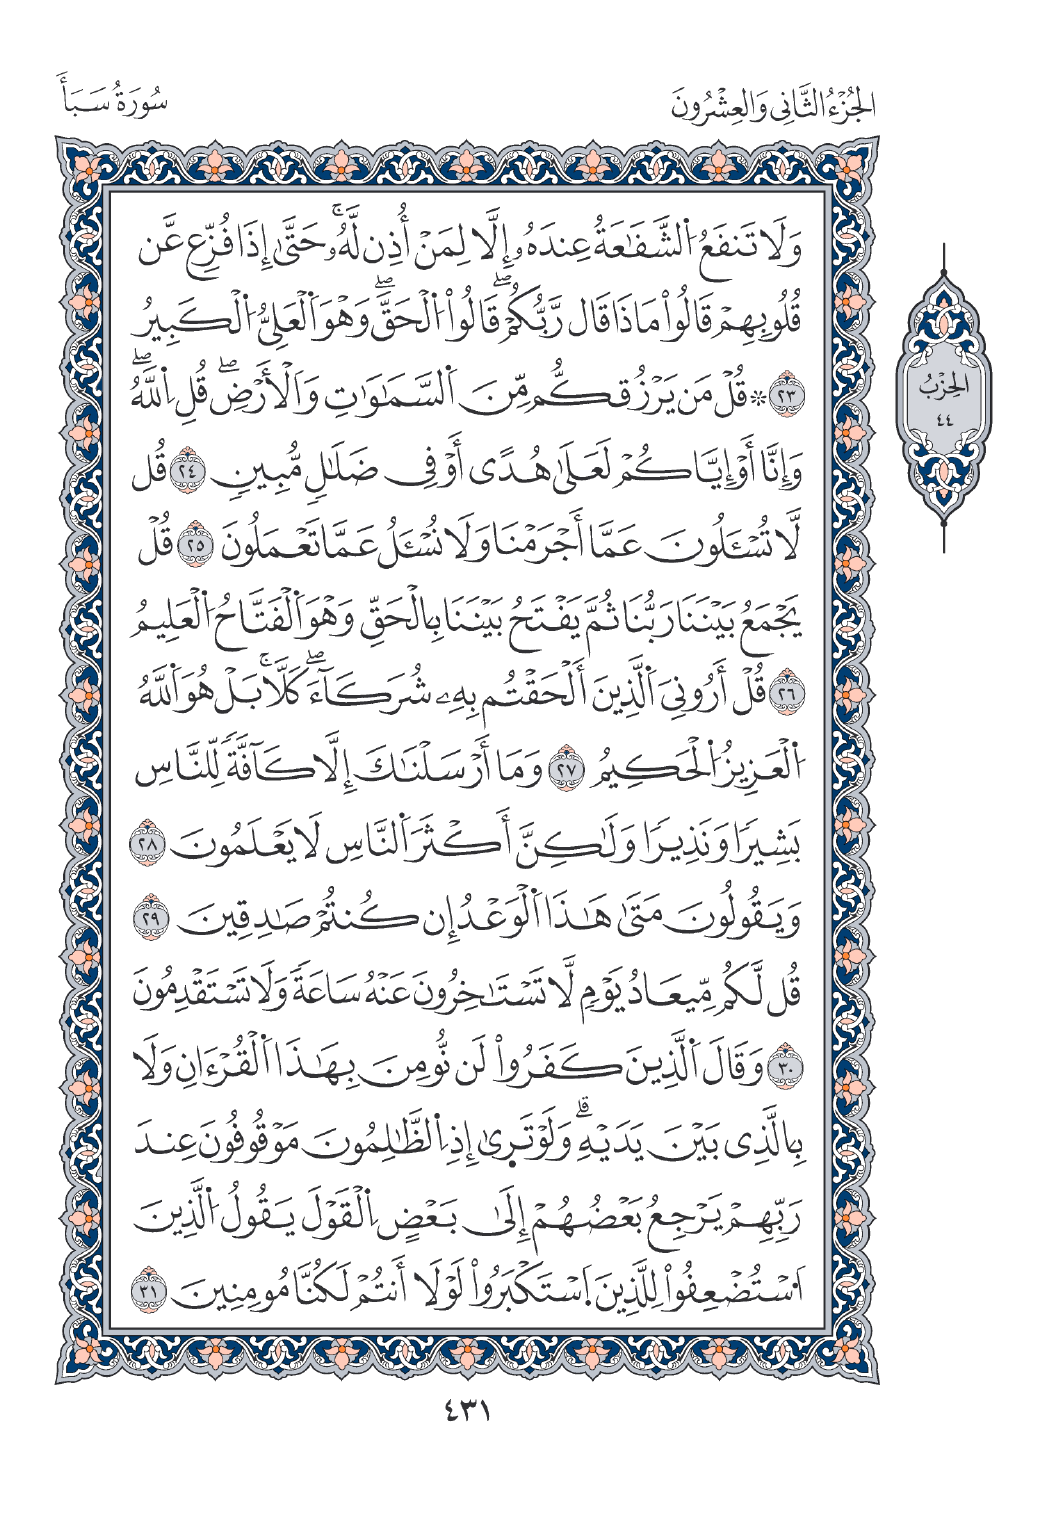 الجُزْءُ الثَّانِي وَالعِشْرُونَ
سُورَةُ سَبَأ
وَلَا تَنفَعُ اُ۬لشَّفَٰعَةُ عِندَهُۥٓ إِلَّا لِمَنْ أُذِن لَّهُۥۚ حَتَّىٰٓ إِذَا فُزِّع عَّن
قُلُوبِهِمْ قَالُواْ مَاذَا قَال رَّبُّكُمْۖ قَالُواْ اُ۬لْحَقَّۖ وَهْوَ اَ۬لْعَلِيُّ اُ۬لْكَبِيرُ
٢٣ ۞ قُلْ مَن يَرْزُقكُّم مِّنَ اَ۬لسَّمَٰوَٰتِ وَالْأَرْضِۖ قُلِ اِ۬للَّهُۖ
وَإِنَّا أَوْ إِيَّاكُمْ لَعَلَىٰ هُدًى أَوْ فِي ضَلَٰلٍ مُّبِينٍ ٢٤ قُل
لَّا تُسْـَٔلُونَ عَمَّا أَجْرَمْنَا وَلَا نُسْـَٔلُ عَمَّا تَعْمَلُونَ ٢٥ قُلْ
يَجْمَعُ بَيْنَنَا رَبُّنَا ثُمَّ يَفْتَحُ بَيْنَنَا بِالْحَقِّ وَهْوَ اَ۬لْفَتَّاحُ اُ۬لْعَلِيمُ
٢٦ قُلْ أَرُونِيَ اَ۬لَّذِينَ أَلْحَقْتُم بِهِۦ شُرَكَآءَۖ كَلَّاۚ بَلْ هُوَ اَ۬للَّهُ
اُ۬لْعَزِيزُ اُ۬لْحَكِيمُ ٢٧ وَمَا أَرْسَلْنَٰكَ إِلَّا كَآفَّةً لِّلنَّاسِ
بَشِيرًا وَنَذِيرًا وَلَٰكِنَّ أَكْثَرَ اَ۬لنَّاسِ لَا يَعْلَمُونَ ٢٨
وَيَقُولُونَ مَتَىٰ هَٰذَا اَ۬لْوَعْدُ إِن كُنتُمْ صَٰدِقِينَ ٢٩
قُل لَّكُم مِّيعَادُ يَوْمٍ لَّا تَسْتَـٰخِرُونَ عَنْهُ سَاعَةً وَلَا تَسْتَقْدِمُونَ
٣٠ وَقَالَ اَ۬لَّذِينَ كَفَرُواْ لَن نُّومِنَ بِهَٰذَا اَ۬لْقُرْءَانِ وَلَا
بِالَّذِي بَيْنَ يَدَيْهِۗ وَلَوْ تَرِىٰٓ إِذِ اِ۬لظَّٰلِمُونَ مَوْقُوفُونَ عِندَ
رَبِّهِمْ يَرْجِعُ بَعْضُهُمْ إِلَىٰ بَعْضٍ اِ۬لْقَوْلَ يَقُولُ اُ۬لَّذِينَ
اَ۟سْتُضْعِفُواْ لِلَّذِينَ اَ۪سْتَكْبَرُواْ لَوْلَا أَنتُمْ لَكُنَّا مُومِنِينَ ٣١
الحِزْبُ
٤٤
٤٣١